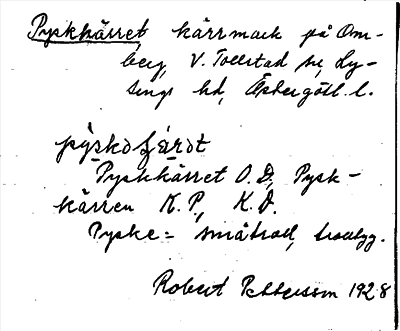 Pyskkärret, kärrmark på Om-
berg, V. Tollstad sn, Ly-
sings hd, Östergötl. l.
Pyskkärret O.D., Pysk-
kärren K.P., K.D.
Pyske = småtroll,
Robert Pettersson 1928